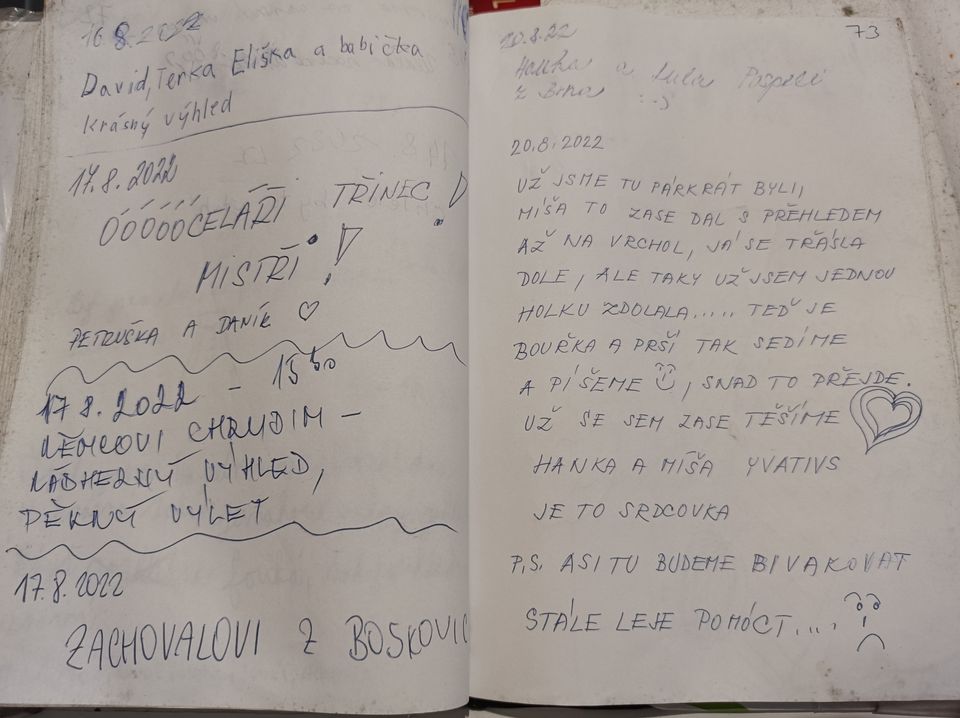 16.8.2022
David, Terka Eliška a babička
krásný výhled
17.8.2022
ÓÓÓÓÓCELÁŘI TŘINEC!
MISTŘI!
PETRUŠKA A DANÍK ♡
17 8. 2022 - 15 50
NĚMCOVI CHRUDIM -
NÁDHERNÝ VÝHLED,
PĚKNÝ VÝLET
17.8.2022
ZACHOVALOVI Z BOSKOVIC
73
20.8.22
Hanka a
z Brna :-)
20.8.2022
UŽ JSME TU PÁRKRÁT BYLI,
MÍŠA TO ZASE DAL S PŘEHLEDEM
AŽ NA VRCHOL, JÁ SE TŘÁSLA
DOLE, ALE TAKY UŽ JSEM JEDNOU
HOLKU ZDOLALA..... TEĎ JE
BOUŘKA A PRŠÍ TAK SEDÍME
A PÍŠEME, SNAD TO PŘEJDE.
UŽ SE SEM ZASE TĚŠÍME
HANKA A MÍŠA YVATIVS
JE TO SRDCOVKA
P.S. ASI TU BUDEME BIVAKOVAT
STÁLE LEJE POMÓCT....